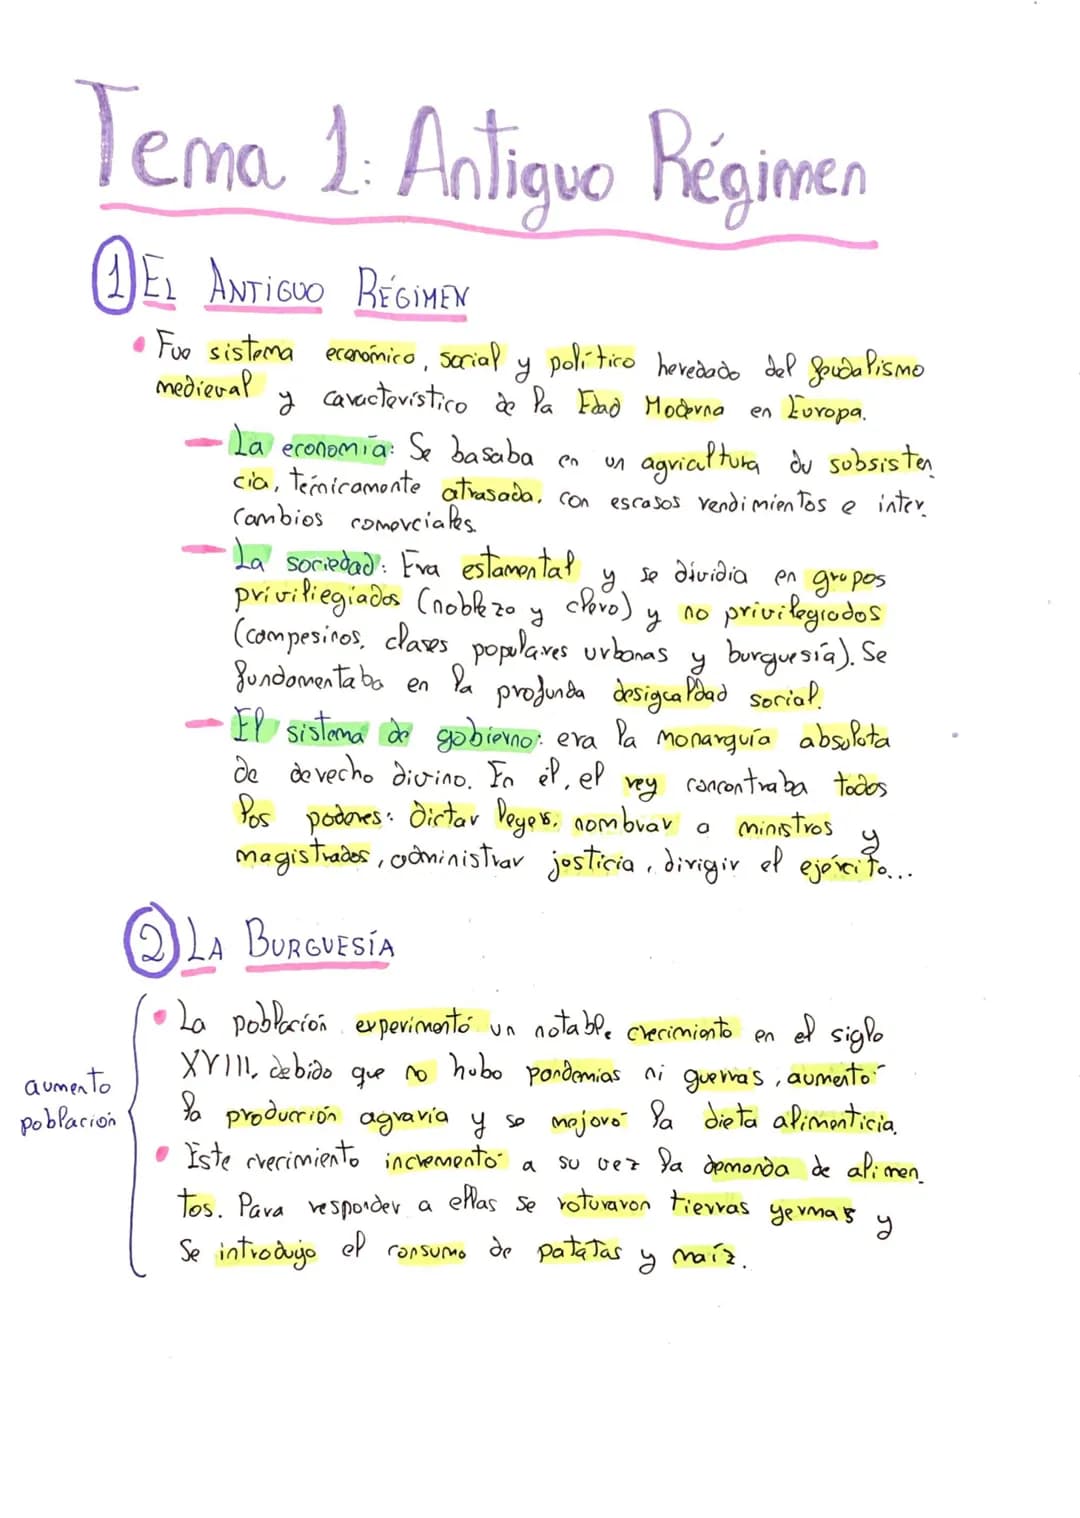 Tema 1: Antiguo Régimen
1 EL ANTIGUO RÉGIMEN
• Fue sistema económico, social y político heredado del feudalismo
medieval y característico de la Edad Moderna en Europa.
— La economía: Se basaba en un agricultura du subsisten
cia, técnicamente atrasada, con escasos rendimientos e inter
cambios comerciales.
— La sociedad: Era estamental y se dividia en grupos
priviliegiados (nobleza y clero) y no privilegiados
(campesinos, clases populares urbanas y burguesía). Se
fundamentaba en la profunda desigualdad social.
— El sistema de gobierno: era la monarquía absoluta
de derecho divino. En él, el rey concontraba todos
los poderes: dictar leyes, nombrar a ministros y
magistrados, administrar justicia, dirigir el ejército...
2 LA BURGUESÍA
• La población experimentó un notable crecimiento en el siglo
XVIII, debido que no hubo pandemias ni guerras, aumentó
la producción agraria y se mejoró la dieta alimenticia.
aumento
población
• Este crecimiento incrementó a su vez la demanda de alimen
tos. Para responder a ellas se roturaron tierras yermas y
se introdujo el consumo de patatas y maíz.